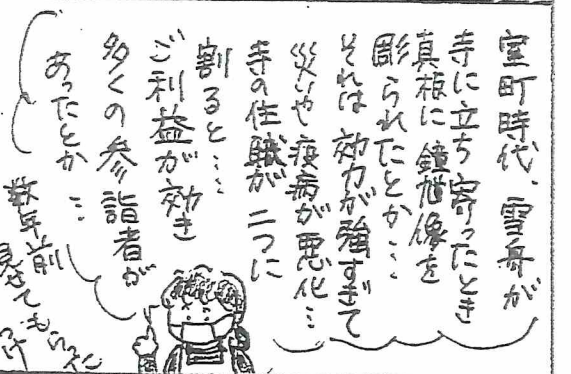 室町時代、雪舟が
寺に立ち寄ったとき
真板に鐘馗像を
彫られたとか…
それは効力が強すぎて
災いや疫病が悪化…
寺の住職が二つに
割ると…
ご利益が効き
多くの参詣者が
あったとか…
数年前
見せてもらいました